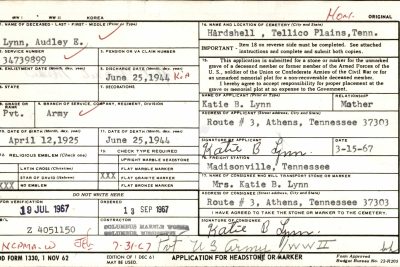 WW I WW II KOREA Hon. ORIGINAL
1. NAME OF DECEASED - LAST - FIRST - MIDDLE (Print or Type)
Lynn, Audley E.
14. NAME AND LOCATION OF CEMETERY (City and State)
Hardshell , Tellico Plains,Tenn.
2. SERVICE NUMBER
34739899
3. PENSION OR VA CLAIM NUMBER
IMPORTANT - Item 18 on reverse side must be completed. See attached instructions and complete and submit both copies.
4. ENLISTMENT DATE (Month, day, year)
5. DISCHARGE DATE (Month, day, year)
June 25,1944 KIA
15. This application is submitted for a stone or marker for the unmarked grave of a deceased member or former member of the Armed Forces of the U.S., soldier of the Union or Confederate Armies of the Civil War or for an unmarked memorial plot for a non-recoverable deceased member.
I hereby agree to accept responsibility for proper placement at the grave or memorial plot at no expense to the Government.
6. STATE
7. DECORATIONS
8. GRADE OR RANK
Pvt.
9. BRANCH OF SERVICE, COMPANY, REGIMENT, DIVISION
Army
Katie B. Lynn
RELATIONSHIP
Mother
Route # 3, Athens, Tennessee 37303
10. DATE OF BIRTH (Month, day, year)
April 12,1925
11. DATE OF DEATH (Month, day, year)
June 25,1944
SIGNATURE OF APPLICANT
Katie B Lynn
DATE
3-15-67
RELIGIOUS EMBLEM (Check one)
CHECK TYPE REQUIRED
LATIN CROSS (Christian)
STAR OF DAVID (Hebrew)
XXX NO EMBLEM
UPRIGHT MARBLE HEADSTONE
FLAT MARBLE MARKER
XXX FLAT GRANITE MARKER
FLAT BRONZE MARKER
16. FREIGHT STATION
Madisonville, Tennessee
17. NAME OF CONSIGNEE WHO WILL TRANSPORT STONE OR MARKER
Mrs. Katie B. Lynn
DO NOT WRITE HERE
Route # 3, Athens, Tennessee 37303
19 JUL 1967
ORDERED
13 SEP 1967
I HAVE AGREED TO TAKE THE STONE OR MARKER TO THE CEMETERY.
Z 4051150
COLUMBUS MARBLE WORKS
SIGNATURE OF CONSIGNEE
Katie B. Lynn
7-31-67 Pvt US Army WW II
DD FORM 1330, 1 NOV 62
EDITION OF 1 DEC 61 MAY BE USED.
APPLICATION FOR HEADSTONE OR MARKER
Form Approved